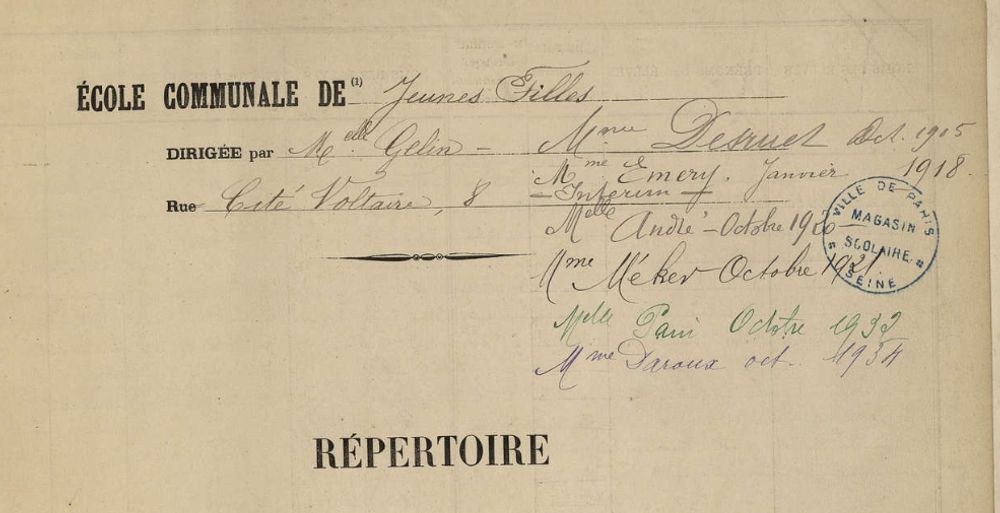 ÉCOLE COMMUNALE DE (1) Jeunes Filles
DIRIGÉE par Melle Gelin - Mme Desruet Oct. 1905
Mme Emery. Janvier 1918.
Rue Cité Voltaire, 8 - Interim -
Melle André - Octobre 1920
Mme Méker Octobre 1921.
VILLE DE PARIS
MAGASIN
SCOLAIRE
SEINE
Melle Octobre 1932
Mme Daroux oct. 1934
RÉPERTOIRE